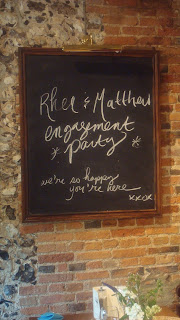 Rhea & Matthew
engagement
* party *
we're so happy
you're here
xxox